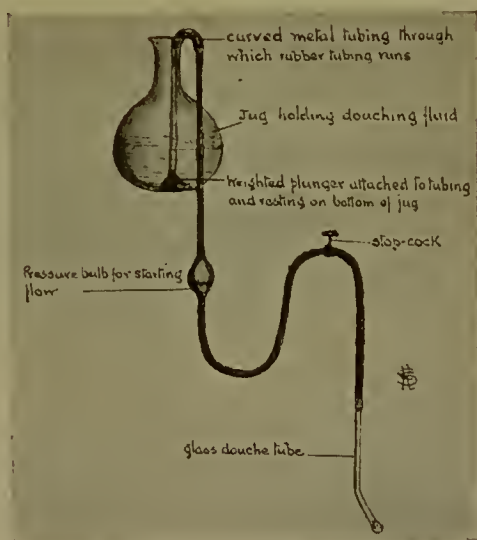 curved metal tubing through
which rubber tubing runs
Jug holding douching fluid
Weighted plunger attached to tubing
and resting on bottom of jug
stop-cock
Pressure bulb for starting
flow
glass douche tube